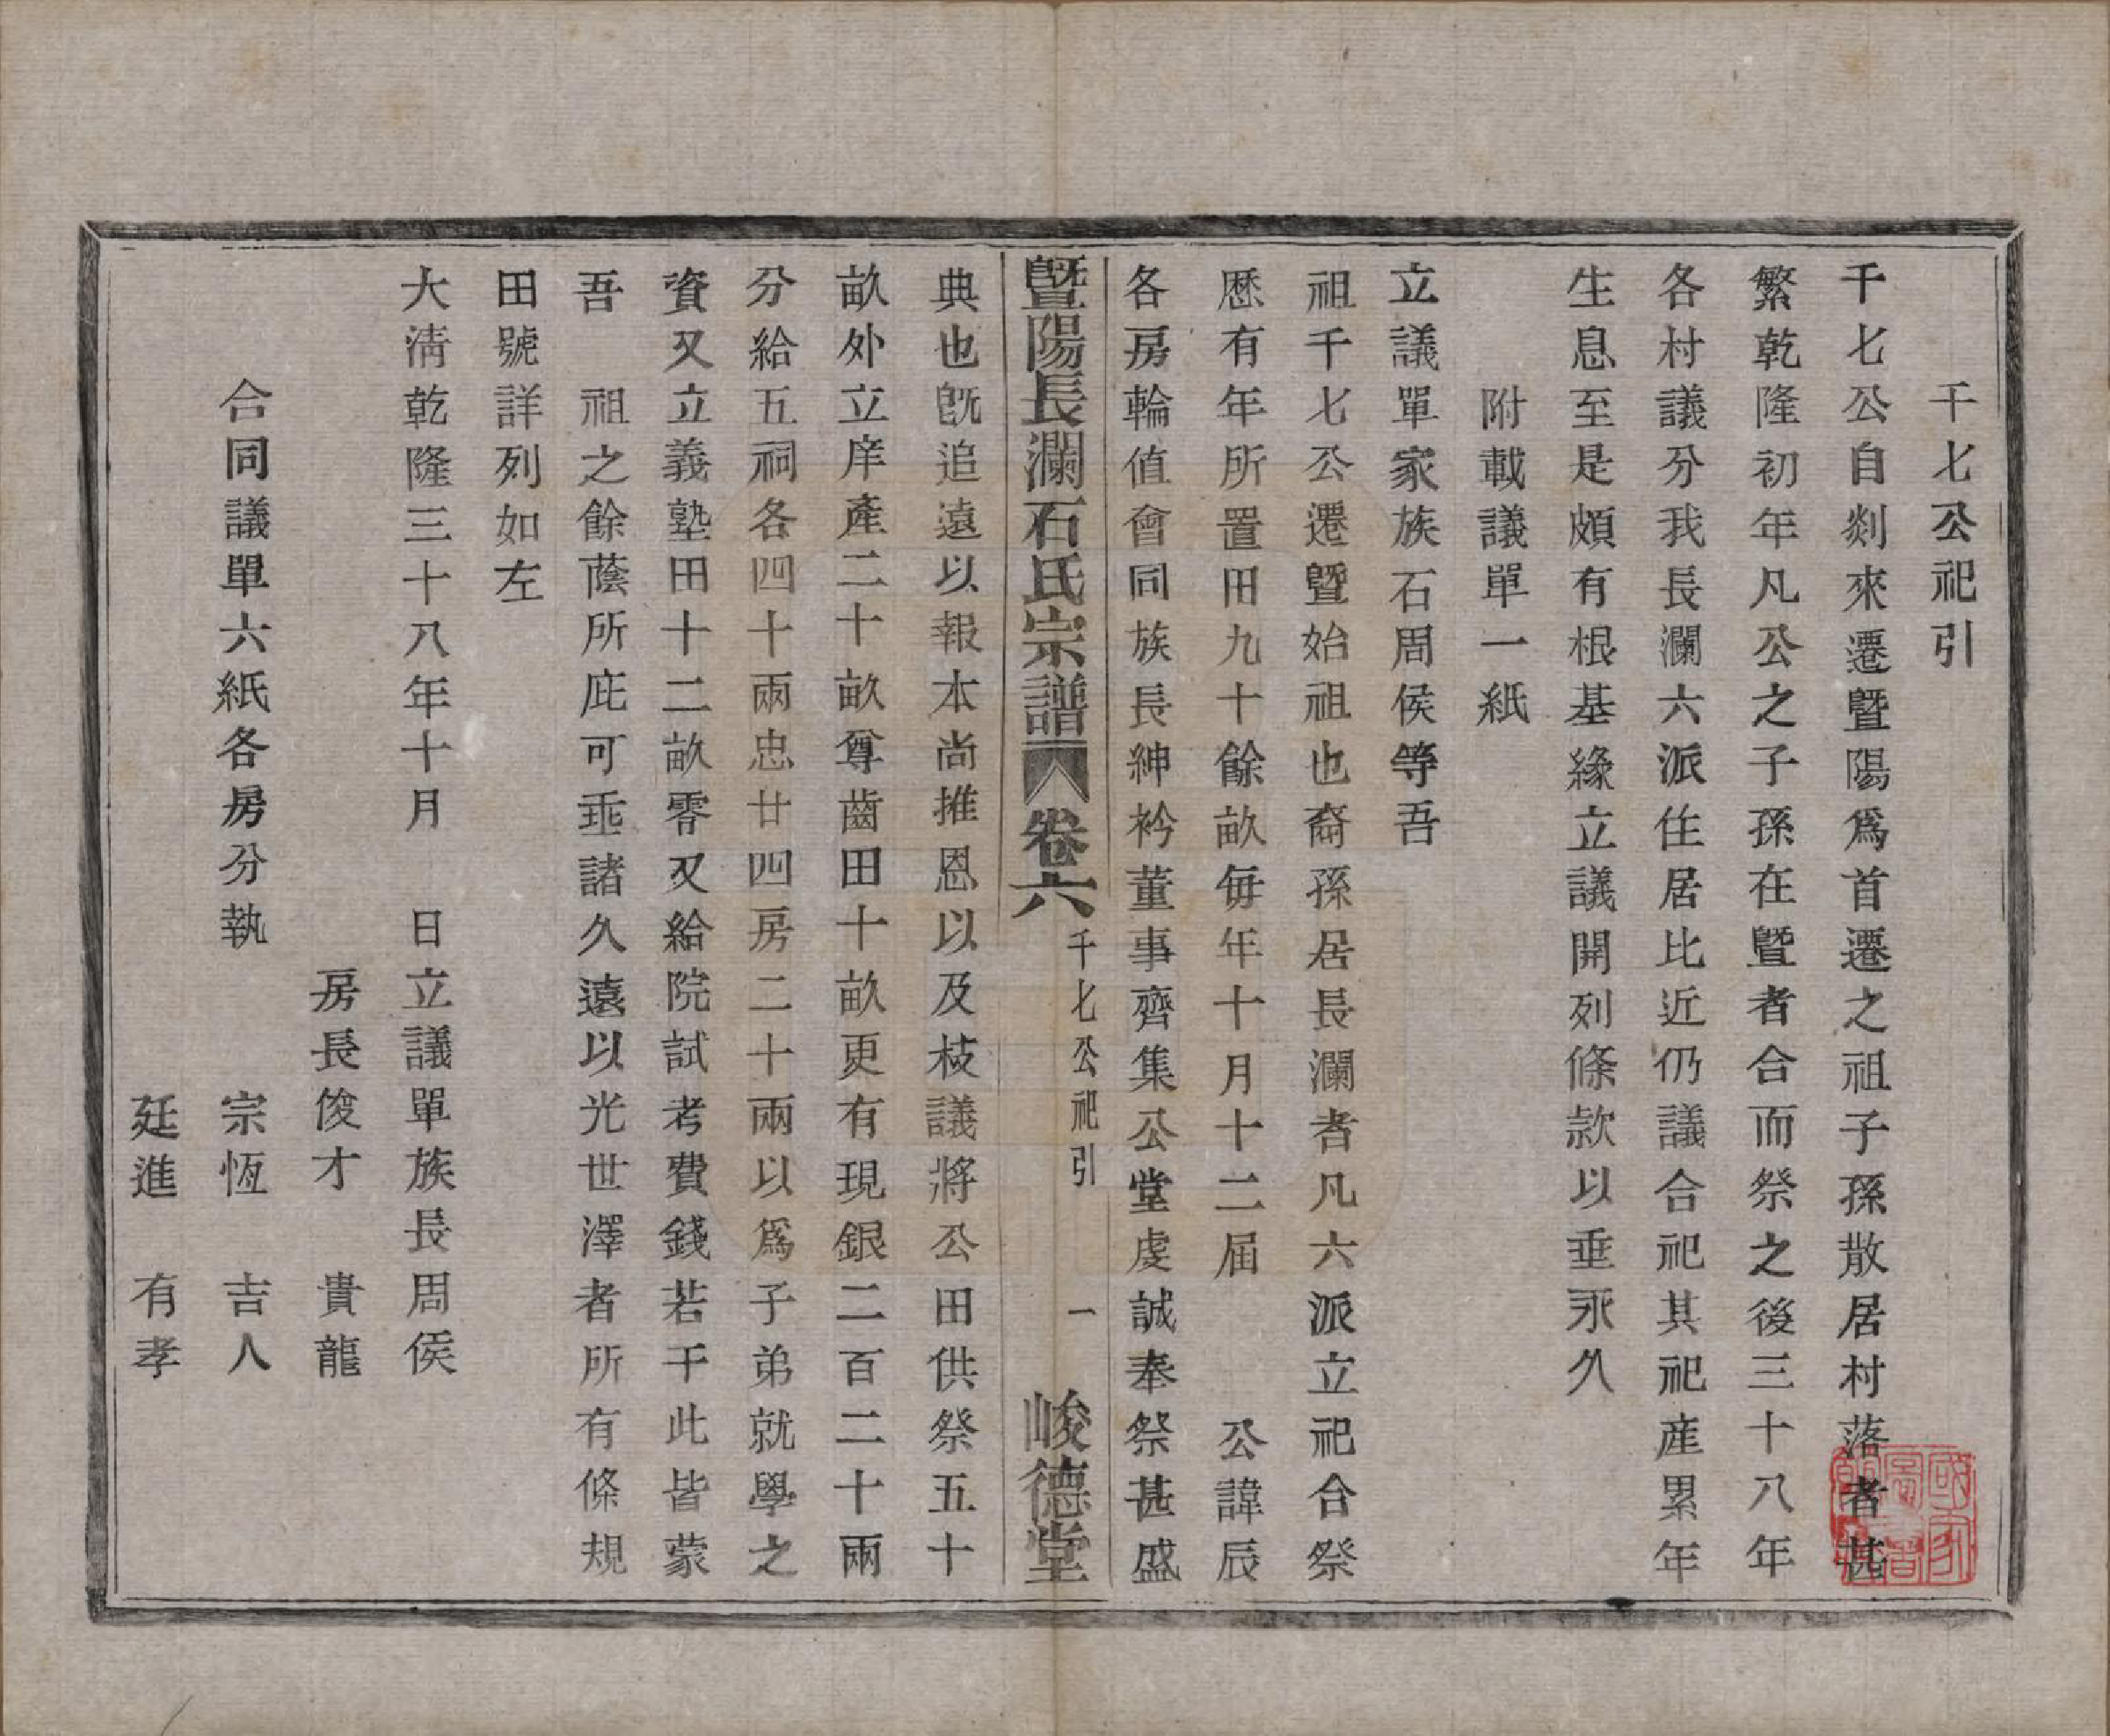 千七公祀引
千七公自剡來遷暨陽爲首遷之祖子孫散居村落者甚
繁乾隆初年凡公之子孫在暨者合而祭之後三十八年
各村議分我長瀾六派住居比近仍議合祀其祀産累年
生息至是頗有根基緣立議開列條款以垂永久
附載議單一紙
立議單家族石周侯等吾
祖千七公遷暨始祖也裔孫居長瀾者凡六派立祀合祭
歷有年所置田九十餘畝每年十月十二屆　公諱辰
各房輪值會同族長紳衿董事齊集公堂虔誠奉祭甚盛
暨陽長瀾石氏宗譜　卷六　千七公祀引　一　峻德堂
典也旣追遠以報本尚推恩以及枝議將公田供祭五十
畝外立庠產二十畝尊齒田十畝更有現銀二百二十兩
分給五祠各四十兩忠廿四房二十兩以爲子弟就學之
資又立義塾田十二畝零又給院試考費錢若干此皆蒙
吾　祖之餘蔭所庇可垂諸久遠以光世澤者所有條規
田號詳列如左
大淸乾隆三十八年十月　日立議單族長周侯
房長俊才　貴龍
合同議單六紙各房分執　宗恆　吉人
廷進　有孝
國家圖書館藏書